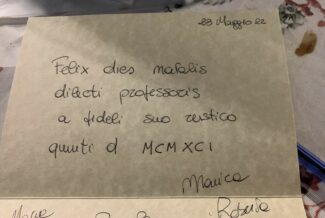 28 Maggio 22
Felix dies natalis
dilecti professoris
a fideli suo rustico
quinti d MCMXCI
Monica